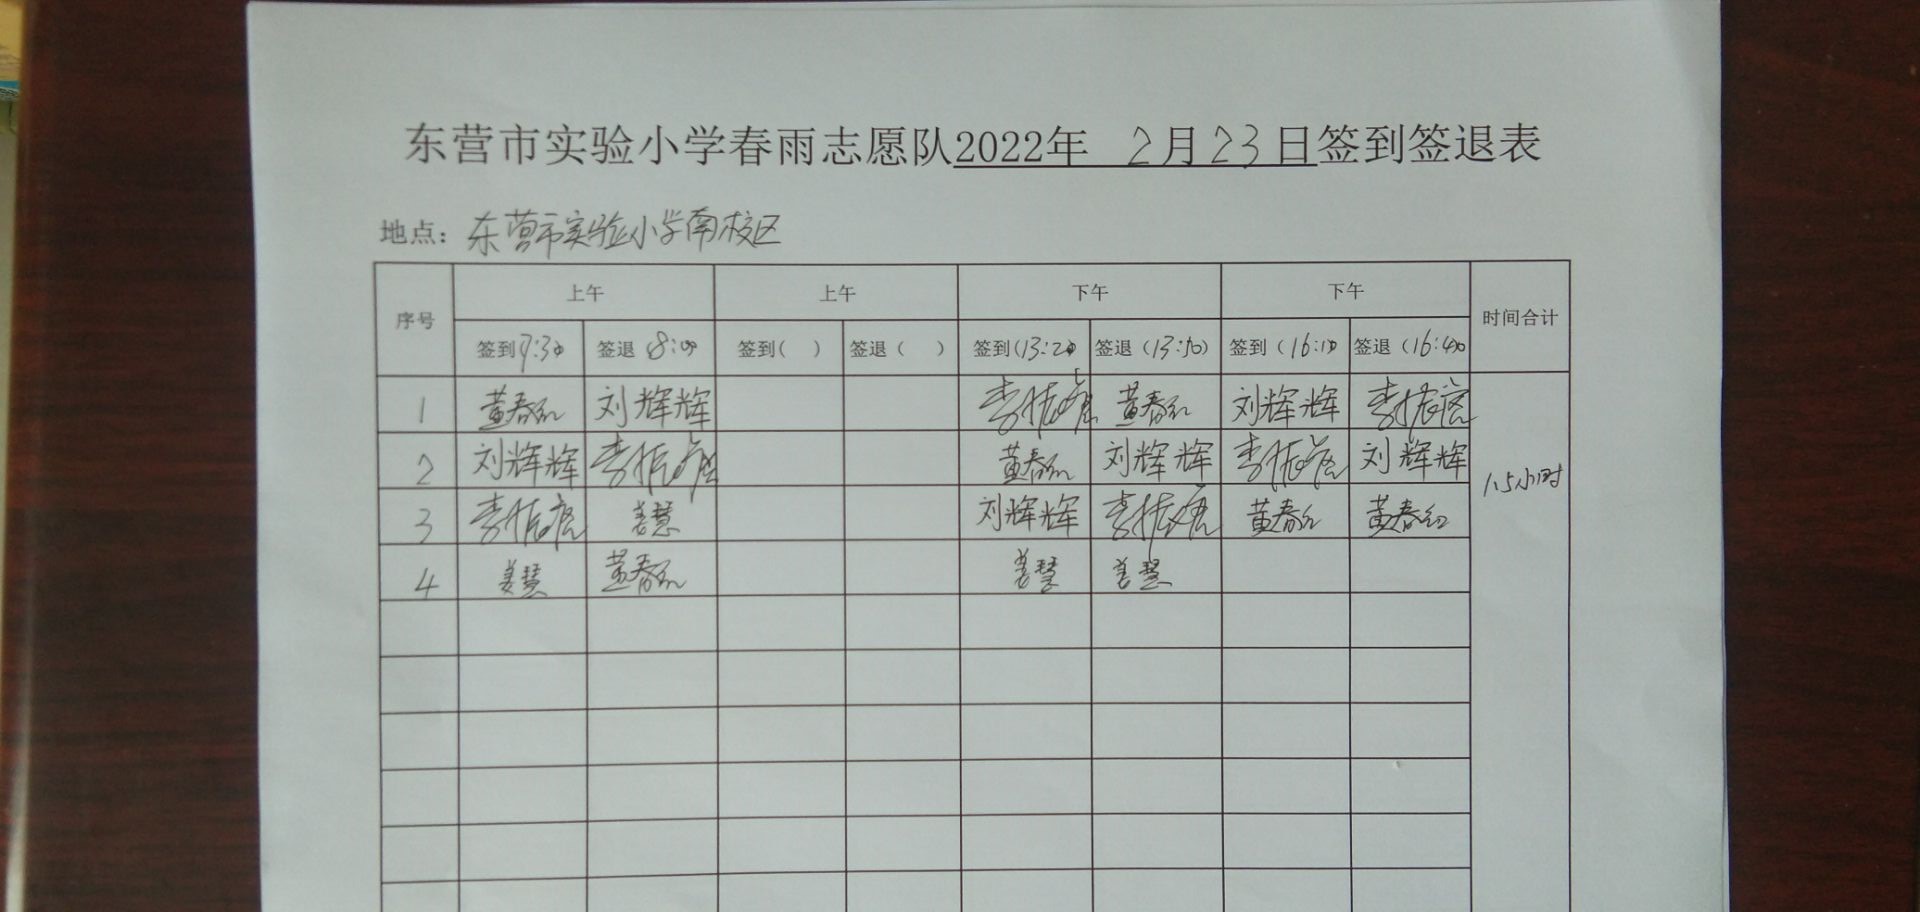 东营市实验小学春雨志愿队2022年 2月23日签到签退表
地点：东营市实验小学南校区
序号 上午 上午 下午 下午 时间合计
签到7:30 签退 8:00 签到( ) 签退( ) 签到(13:20 签退(13:50) 签到(16:10 签退(16:40
1 黄春红 刘辉辉 李振 黄春红 刘辉辉 李振
2 刘辉辉 李振 黄春红 刘辉辉 李振 刘辉辉 1.5小时
3 李振 姜慧 刘辉辉 李振 黄春红 黄春红
4 姜慧 黄春红 姜慧 姜慧